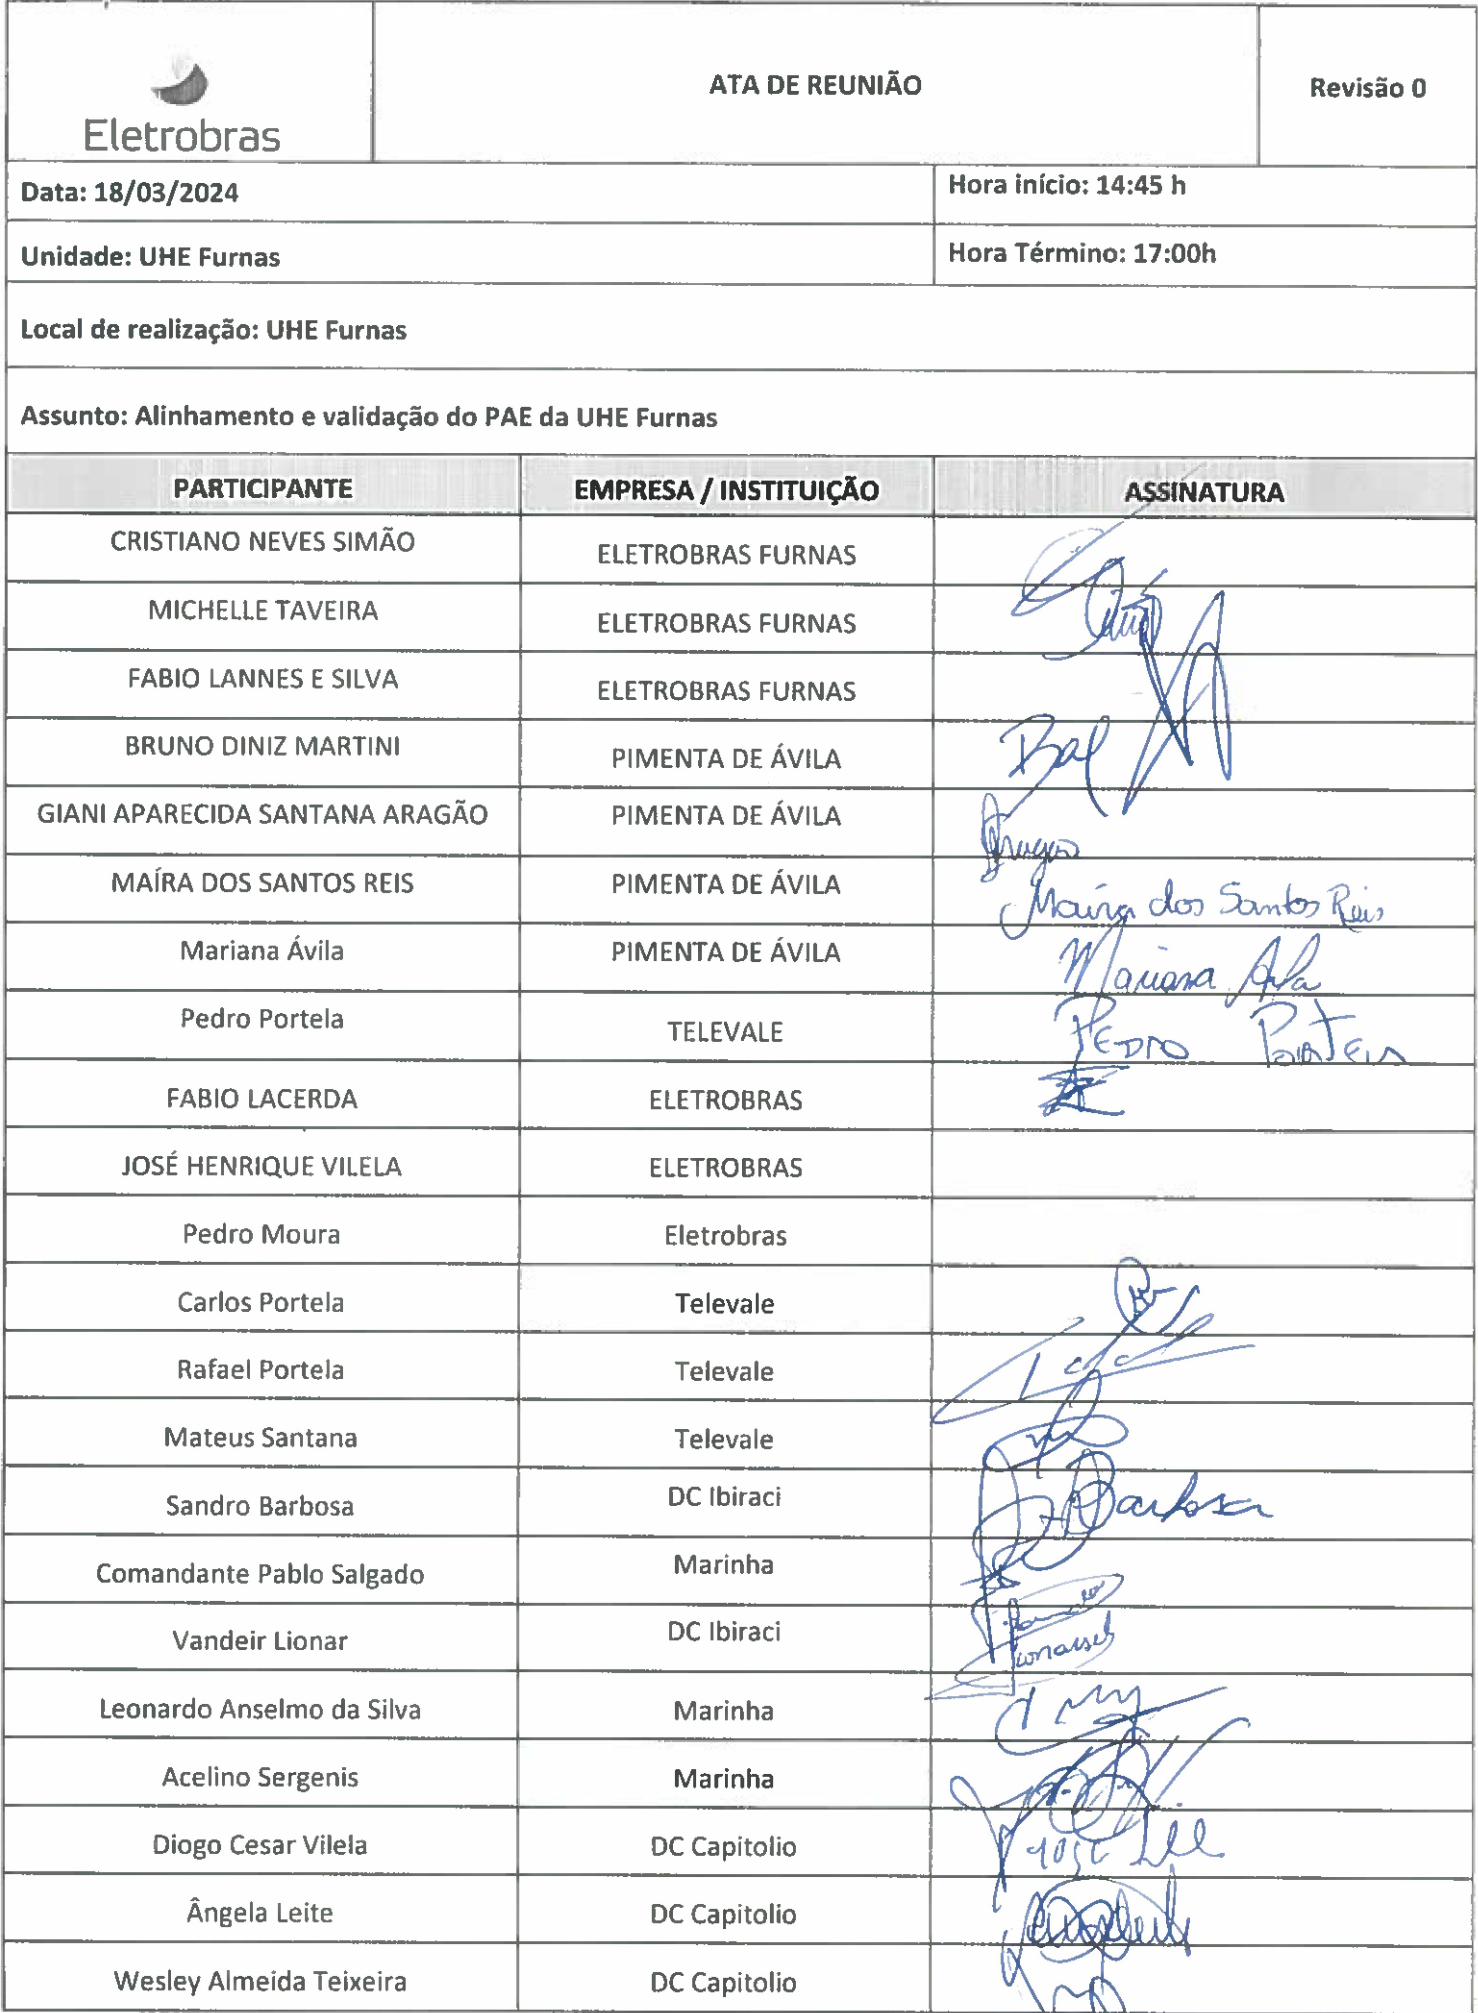 Eletrobras
ATA DE REUNIÃO
Revisão 0
Data: 18/03/2024
Hora início: 14:45 h
Unidade: UHE Furnas
Hora Término: 17:00h
Local de realização: UHE Furnas
Assunto: Alinhamento e validação do PAE da UHE Furnas
PARTICIPANTE EMPRESA / INSTITUIÇÃO ASSINATURA
CRISTIANO NEVES SIMÃO ELETROBRAS FURNAS
MICHELLE TAVEIRA ELETROBRAS FURNAS
FABIO LANNES E SILVA ELETROBRAS FURNAS
BRUNO DINIZ MARTINI PIMENTA DE ÁVILA
GIANI APARECIDA SANTANA ARAGÃO PIMENTA DE ÁVILA
MAÍRA DOS SANTOS REIS PIMENTA DE ÁVILA Maíra dos Santos Reis
Mariana Ávila PIMENTA DE ÁVILA Mariana
Pedro Portela TELEVALE PEDRO PORTELA
FABIO LACERDA ELETROBRAS
JOSÉ HENRIQUE VILELA ELETROBRAS
Pedro Moura Eletrobras
Carlos Portela Televale
Rafael Portela Televale
Mateus Santana Televale
Sandro Barbosa DC Ibiraci Barbosa
Comandante Pablo Salgado Marinha
Vandeir Lionar DC Ibiraci
Leonardo Anselmo da Silva Marinha
Acelino Sergenis Marinha
Diogo Cesar Vilela DC Capitolio
Ângela Leite DC Capitolio
Wesley Almeida Teixeira DC Capitolio